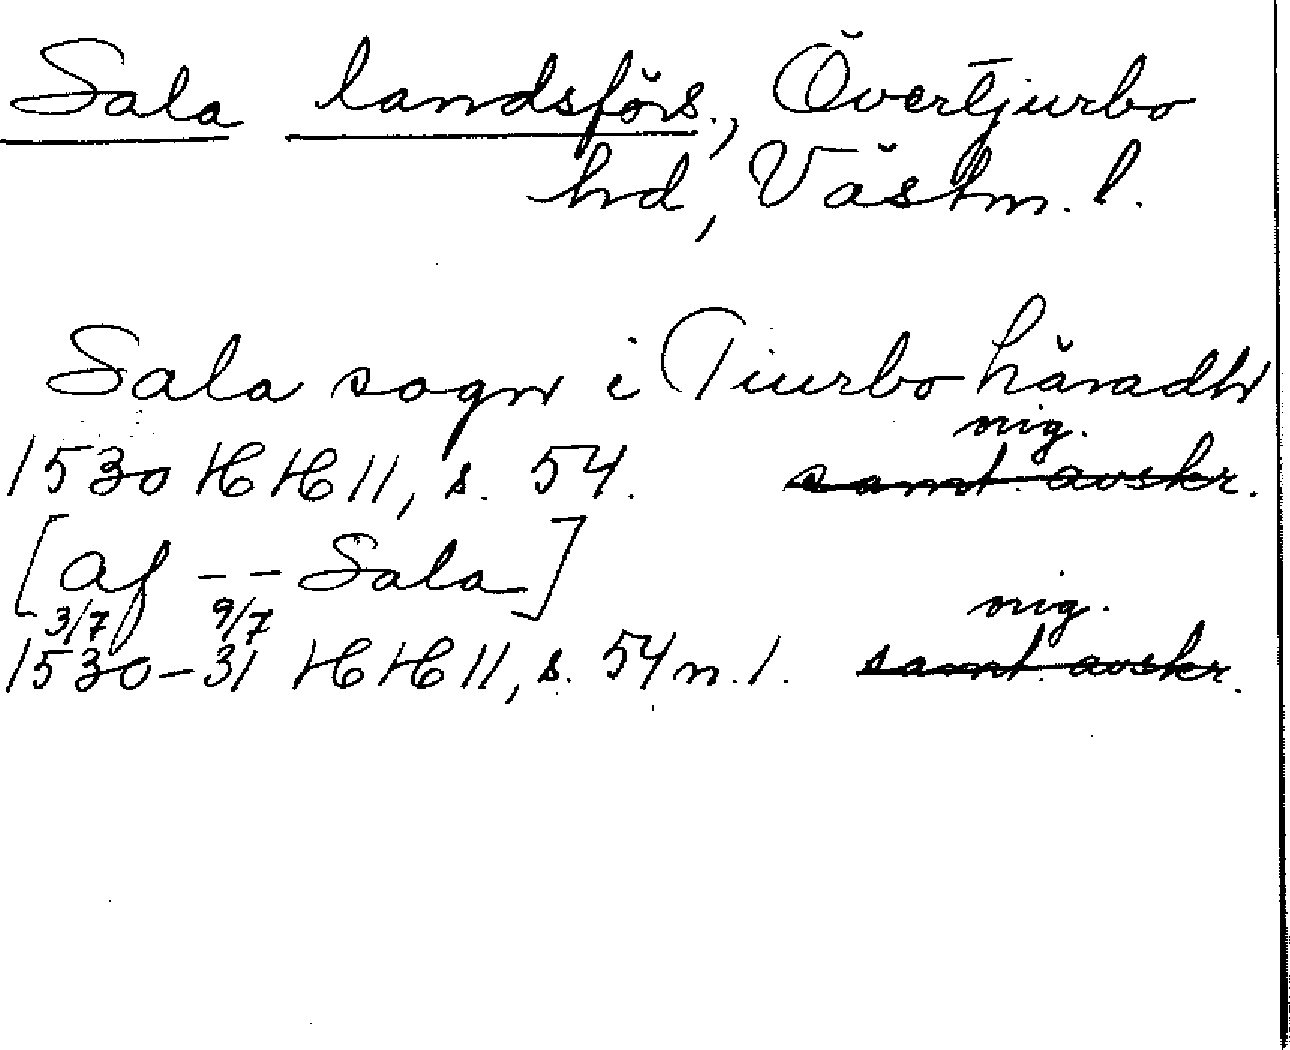 Sala landsförs., Övertjurbo
hd, Västm. l.
Sala sogn i Tiurbo häradh
orig.
1530 HH 11, s. 54. samt. avskr.
[af -- Sala]
3/7 9/7 orig.
1530-31 HH 11, s. 54 n. 1. samt. avskr.